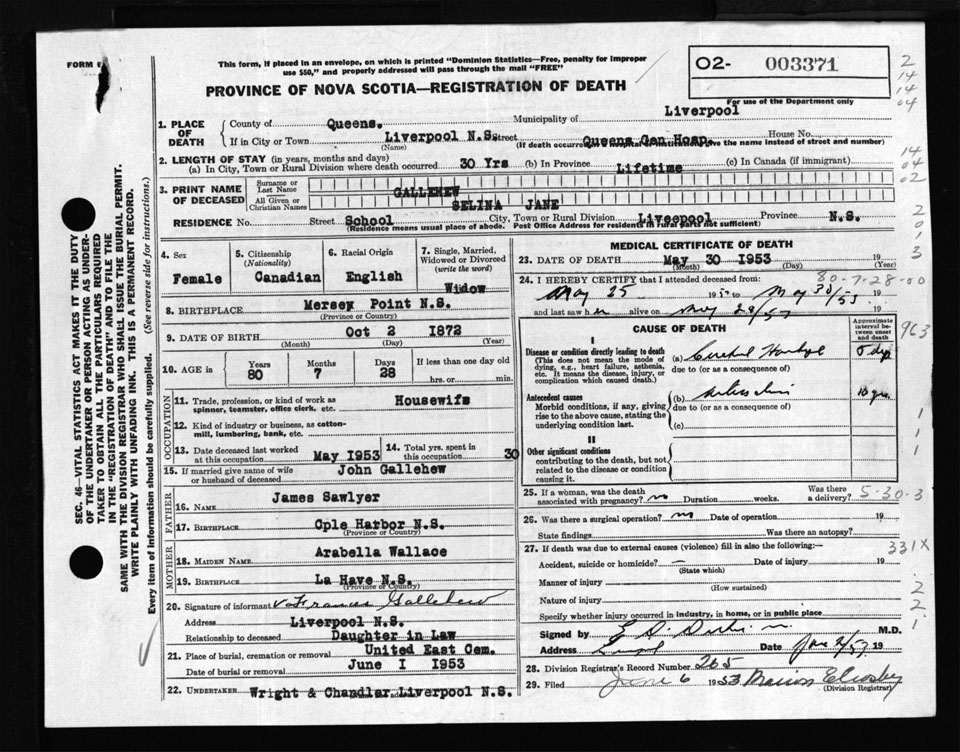 FORM
This form, if placed in an envelope, on which is printed "Dominion Statistics—Free, penalty for improper
use $50," and properly addressed will pass through the mail "FREE"
PROVINCE OF NOVA SCOTIA—REGISTRATION OF DEATH
O2- 003371
For use of the Department only
2
14
14
04
1. PLACE OF DEATH
County of Queens. Municipality of Liverpool
If in City or Town Liverpool N.S. Street Queens Gen Hosp. House No.
(Name) (If death occurred in a hospital or institution give the name instead of street and number)
14
04
02
2. LENGTH OF STAY (in years, months and days)
(a) In City, Town or Rural Division where death occurred 30 Yrs (b) In Province Lifetime (c) In Canada (if immigrant)
3. PRINT NAME OF DECEASED
Surname or Last Name GALLEHEW
All Given or Christian Names SELINA JANE
RESIDENCE No. Street School City, Town or Rural Division Liveepool Province N.S.
(Residence means usual place of abode. Post Office Address for residents in rural parts not sufficient)
2
0
1
3
4. Sex Female
5. Citizenship (Nationality) Canadian
6. Racial Origin English
7. Single, Married, Widowed or Divorced (write the word) Widow
8. BIRTHPLACE Mersey Point N.S.
(Province or Country)
9. DATE OF BIRTH Oct 2 1872
(Month) (Day) (Year)
10. AGE in Years 80 Months 7 Days 28 If less than one day old hrs. or min.
OCCUPATION
11. Trade, profession, or kind of work as spinner, teamster, office clerk, etc. Housewife
12. Kind of industry or business, as cotton-mill, lumbering, bank, etc.
13. Date deceased last worked at this occupation May 1953
14. Total yrs. spent in this occupation 30
15. If married give name of wife or husband of deceased John Gallehew
FATHER
16. NAME James Sawlyer
17. BIRTHPLACE Cple Harbor N.S.
(Province or Country)
MOTHER
18. MAIDEN NAME Arabella Wallace
19. BIRTHPLACE La Have N.S.
(Province or Country)
20. Signature of informant Frances Gallehew
Address Liverpool N.S.
Relationship to deceased Daughter in Law
21. Place of burial, cremation or removal United East Cem.
Date of burial or removal June I 1953
22. UNDERTAKER Wright & Chandler Liverpool N.S.
MEDICAL CERTIFICATE OF DEATH
23. DATE OF DEATH May 30 1953
(Month) (Day) (Year)
80-7-28-00
24. I HEREBY CERTIFY that I attended deceased from:
May 25 19 to May 30/53 19
and last saw her alive on May 29/53 19
CAUSE OF DEATH
Approximate interval between onset and death
963
I
Disease or condition directly leading to death (a)
(This does not mean the mode of dying, e.g., heart failure, asthenia, etc. It means the disease, injury, or complication which caused death.)
due to (or as a consequence of)
5 dys
Antecedent causes (b)
Morbid conditions, if any, giving rise to the above cause, stating the underlying condition last.
due to (or as a consequence of)
10 yrs
(c)
1
1
1
II
Other significant conditions
contributing to the death, but not related to the disease or condition causing it.
25. If a woman, was the death associated with pregnancy? no Duration weeks. Was there a delivery?
5-30-3
26. Was there a surgical operation? no Date of operation 19
State findings Was there an autopsy?
27. If death was due to external causes (violence) fill in also the following:—
331X
Accident, suicide or homicide? — Date of injury 19
(State which)
Manner of injury
(How sustained)
Nature of injury
2
2
1
Specify whether injury occurred in industry, in home, or in public place
Signed by M.D.
Address Date June 2/53 19
28. Division Registrar's Record Number 265
29. Filed June 6 1953 Crosby
(Division Registrar)
SEC. 46—VITAL STATISTICS ACT MAKES IT THE DUTY
OF THE UNDERTAKER OR PERSON ACTING AS UNDER-
TAKER TO OBTAIN ALL THE PARTICULARS REQUIRED
IN THE "REGISTRATION OF DEATH" AND TO FILE THE
SAME WITH THE DIVISION REGISTRAR WHO SHALL ISSUE THE BURIAL PERMIT.
WRITE PLAINLY WITH UNFADING INK. THIS IS A PERMANENT RECORD.
Every item of Information should be carefully supplied. (See reverse side for instructions.)